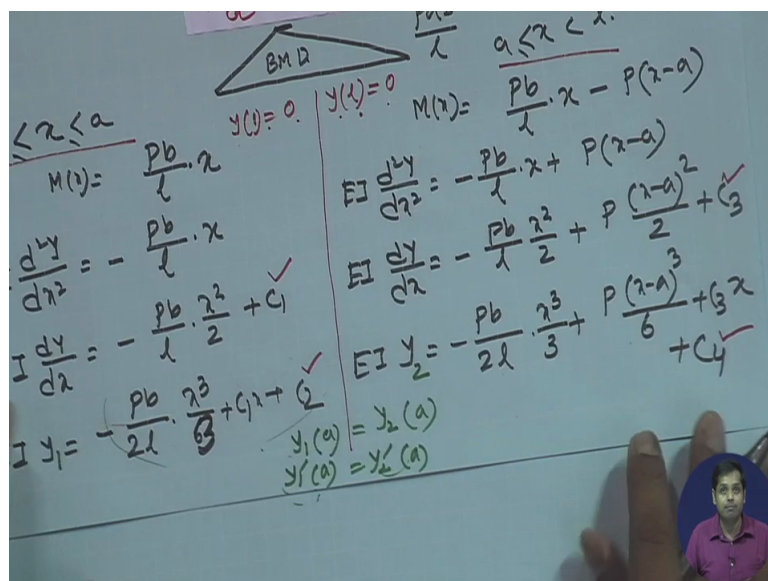 BMD
y(0)=0.
y(l)=0
≤x≤a
M(x)= Pb/l · x
d²y/dx² = - Pb/l · x
I dy/dx = - Pb/l · x²/2 + C₁
I y₁ = - Pb/2l · x³/3 + C₁x + C₂
a≤x<l.
M(x)= Pb/l · x - P(x-a)
EI d²y/dx² = - Pb/l · x + P(x-a)
EI dy/dx = - Pb/l x²/2 + P (x-a)²/2 + C₃
EI y₂ = - Pb/2l · x³/3 + P (x-a)³/6 + C₃x
+ C₄
y₁(a) = y₂(a)
y₁′(a) = y₂′(a)